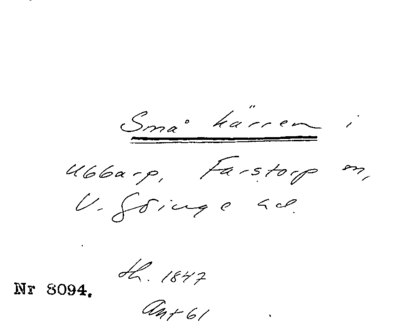 Små kärren i
Ubbarp, Farstorp sn,
V. Göinge hd.
th. 1847
Nr 8094.
Ant 61